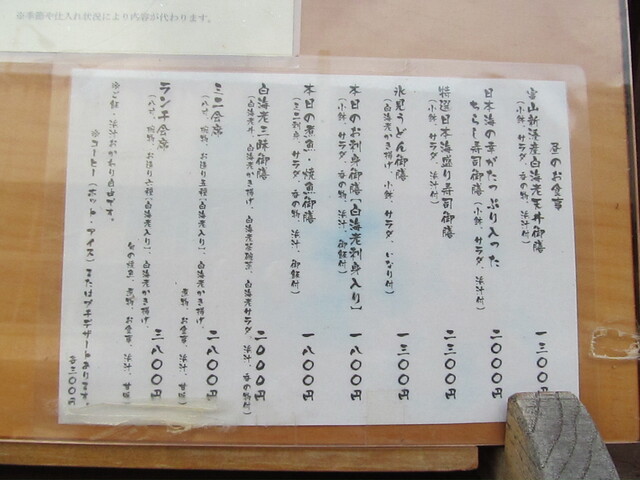 ※季節や仕入れ状況により内容が代わります。
昼のお食事
富山新湊産白海老天丼御膳 一三〇〇円
(小鉢、サラダ、香の物、汁付)
日本海の幸がたっぷり入った
ちらし寿司御膳(小鉢、サラダ、汁付) 二〇〇〇円
特選日本海盛り寿司御膳 二三〇〇円
(小鉢、サラダ、汁付)
氷見うどん御膳 一三〇〇円
(白海老かき揚げ、小鉢、サラダ、いなり付)
本日のお刺身御膳【白海老刺身入り】 一八〇〇円
(小鉢、サラダ、香の物、汁、御飯付)
本日の煮魚・焼魚御膳 一八〇〇円
(ミニ刺身、サラダ、香の物、汁、御飯付)
白海老三昧御膳 二〇〇〇円
(白海老丼、白海老かき揚げ、白海老茶碗蒸、白海老サラダ、汁、香の物付)
ミニ会席 二八〇〇円
(八寸、焼物、お造り五種【白海老入り】、白海老かき揚げ、
煮物、お食事、汁、甘味)
ランチ会席 三八〇〇円
(八寸、焼物、お造り六種【白海老入り】、白海老かき揚げ、
煮物、お食事、汁、甘味)
※ご飯、汁おかわり自由です。
※コーヒー(ホット・アイス)またはプチデザートあります。
各三〇〇円